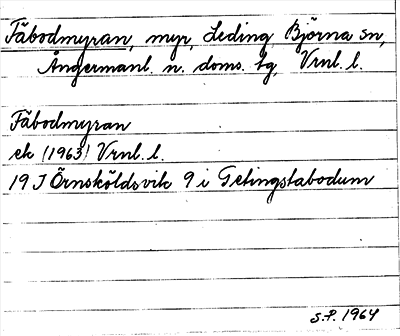 Fäbodmyran, myr, Leding Björna sn,
Ångermanl. n. doms. tg, Vrnl. l.
Fäbodmyran
ek (1963) Vrnl. l.
19 J Örnsköldsvik 9 i Getingstabodum
S.P. 1964